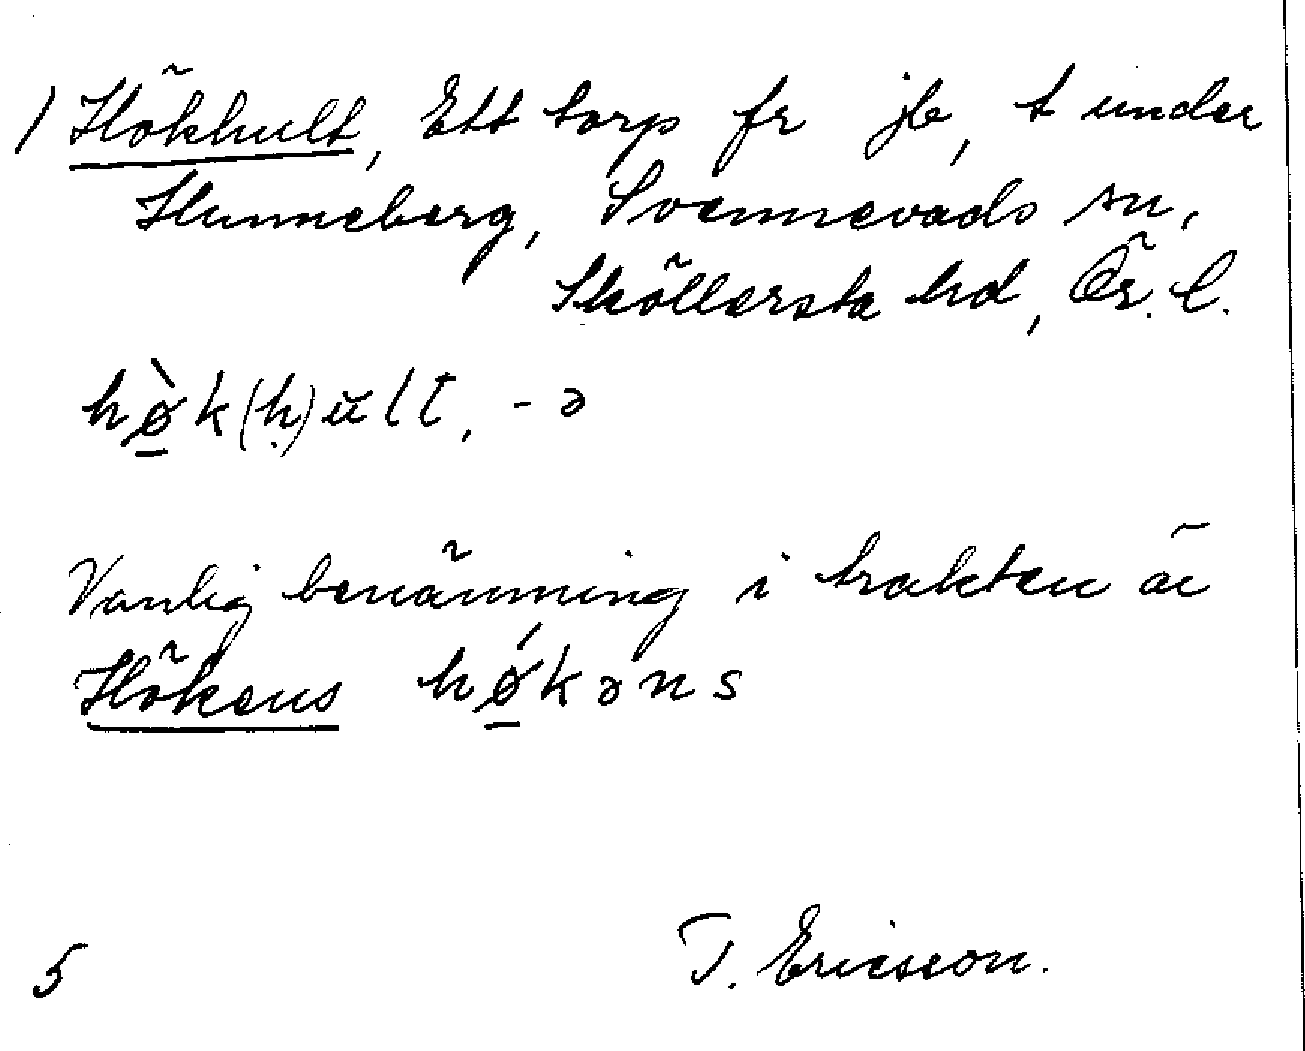 1 Hökhult, Ett torp fr jb, t under
Hunneberg, Svennevads sn,
Sköllersta hd, Ör. l.
hø̀k(h)ult, -ə
Vanlig benämning i trakten är
Hökens hǿkəns
5 T. Ericsson.